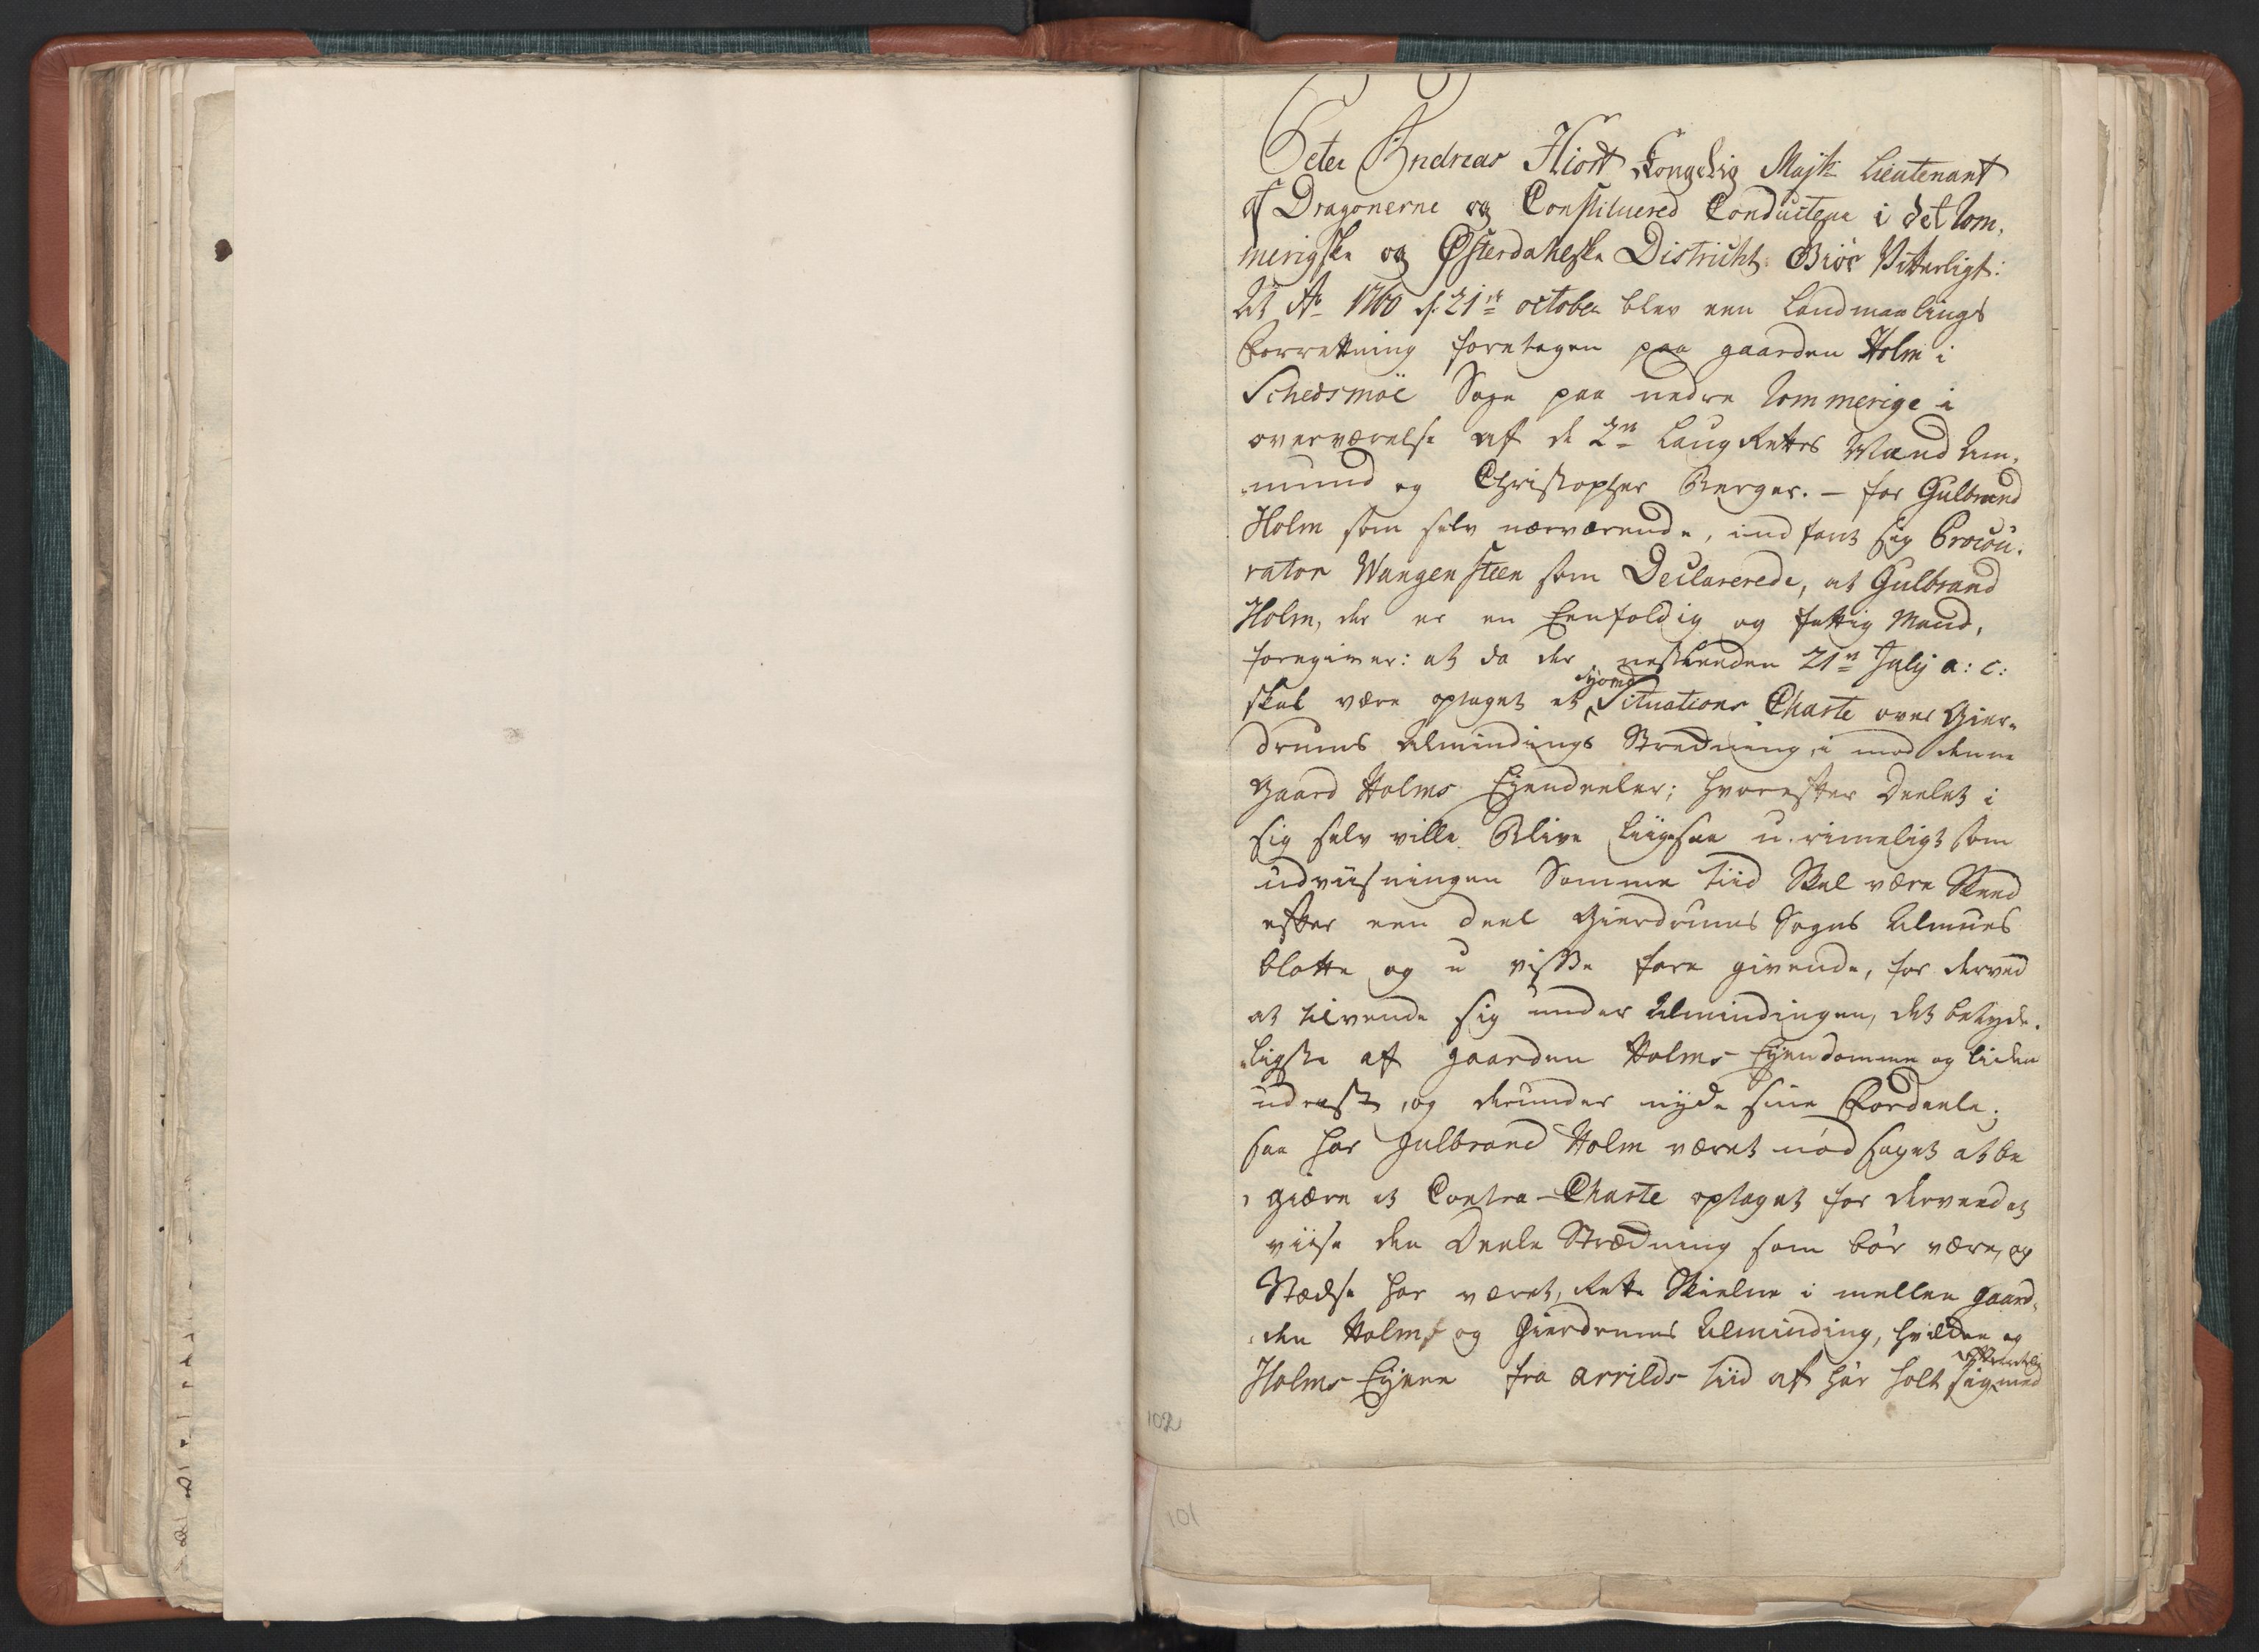 Peter Andreas Hiort Kongelig Majts Lieutenant
af Dragonerne og Constituered Conducteur i det Rom-
merigske og Østerdahlske District Giør Vitterligt:
At Ao 1760 d: 21de october blev een Landmaalings
Forretning foretagen paa gaarden Holm i
Schedsmoe Sogn paa nedre Rommerige i
overværelse af de 2de Laug Rettes Mænd Am-
mund og Christopher Berger. – for Gulbrand
Holm som selv nærværende, ind fant sig Procou-
rator Wangensteen som Declarerede, at Gulbrand
Holm, der er en Eenfoldig og fattig Mand,
foregiver: at da der nestleeden 21de Julij a: c:
skal være optaget et Situations Charte over Gier-
drums Almindings Strækning, i mod denne
Gaard Holms Eyendeeler; hvorefter Deelet i
sig selv ville Blive liigesaa u-rimeligt som
udviisningen Samme tiid Skal være Skeed
efter een deel Gierdrums Sogns Almues
blotte og u visse fore givende, for derved
at tilvende sig under Almindingen, det betyde-
ligste af gaarden Holms Eyendomme og liden
udrast, og derunder nyde sine Fordeele;
saa har Gulbrand Holm været nødsaget at be
giære et Contra-Charte optaget for derved at
viise den Deele Strækning som bør være, og
Stædse har været, Rette Skielne i mellem gaard-
den Holms og Gierdrums Alminding, hvilken og
Holms Eyere fra Arrilds tiid af har holt sig med
102
101